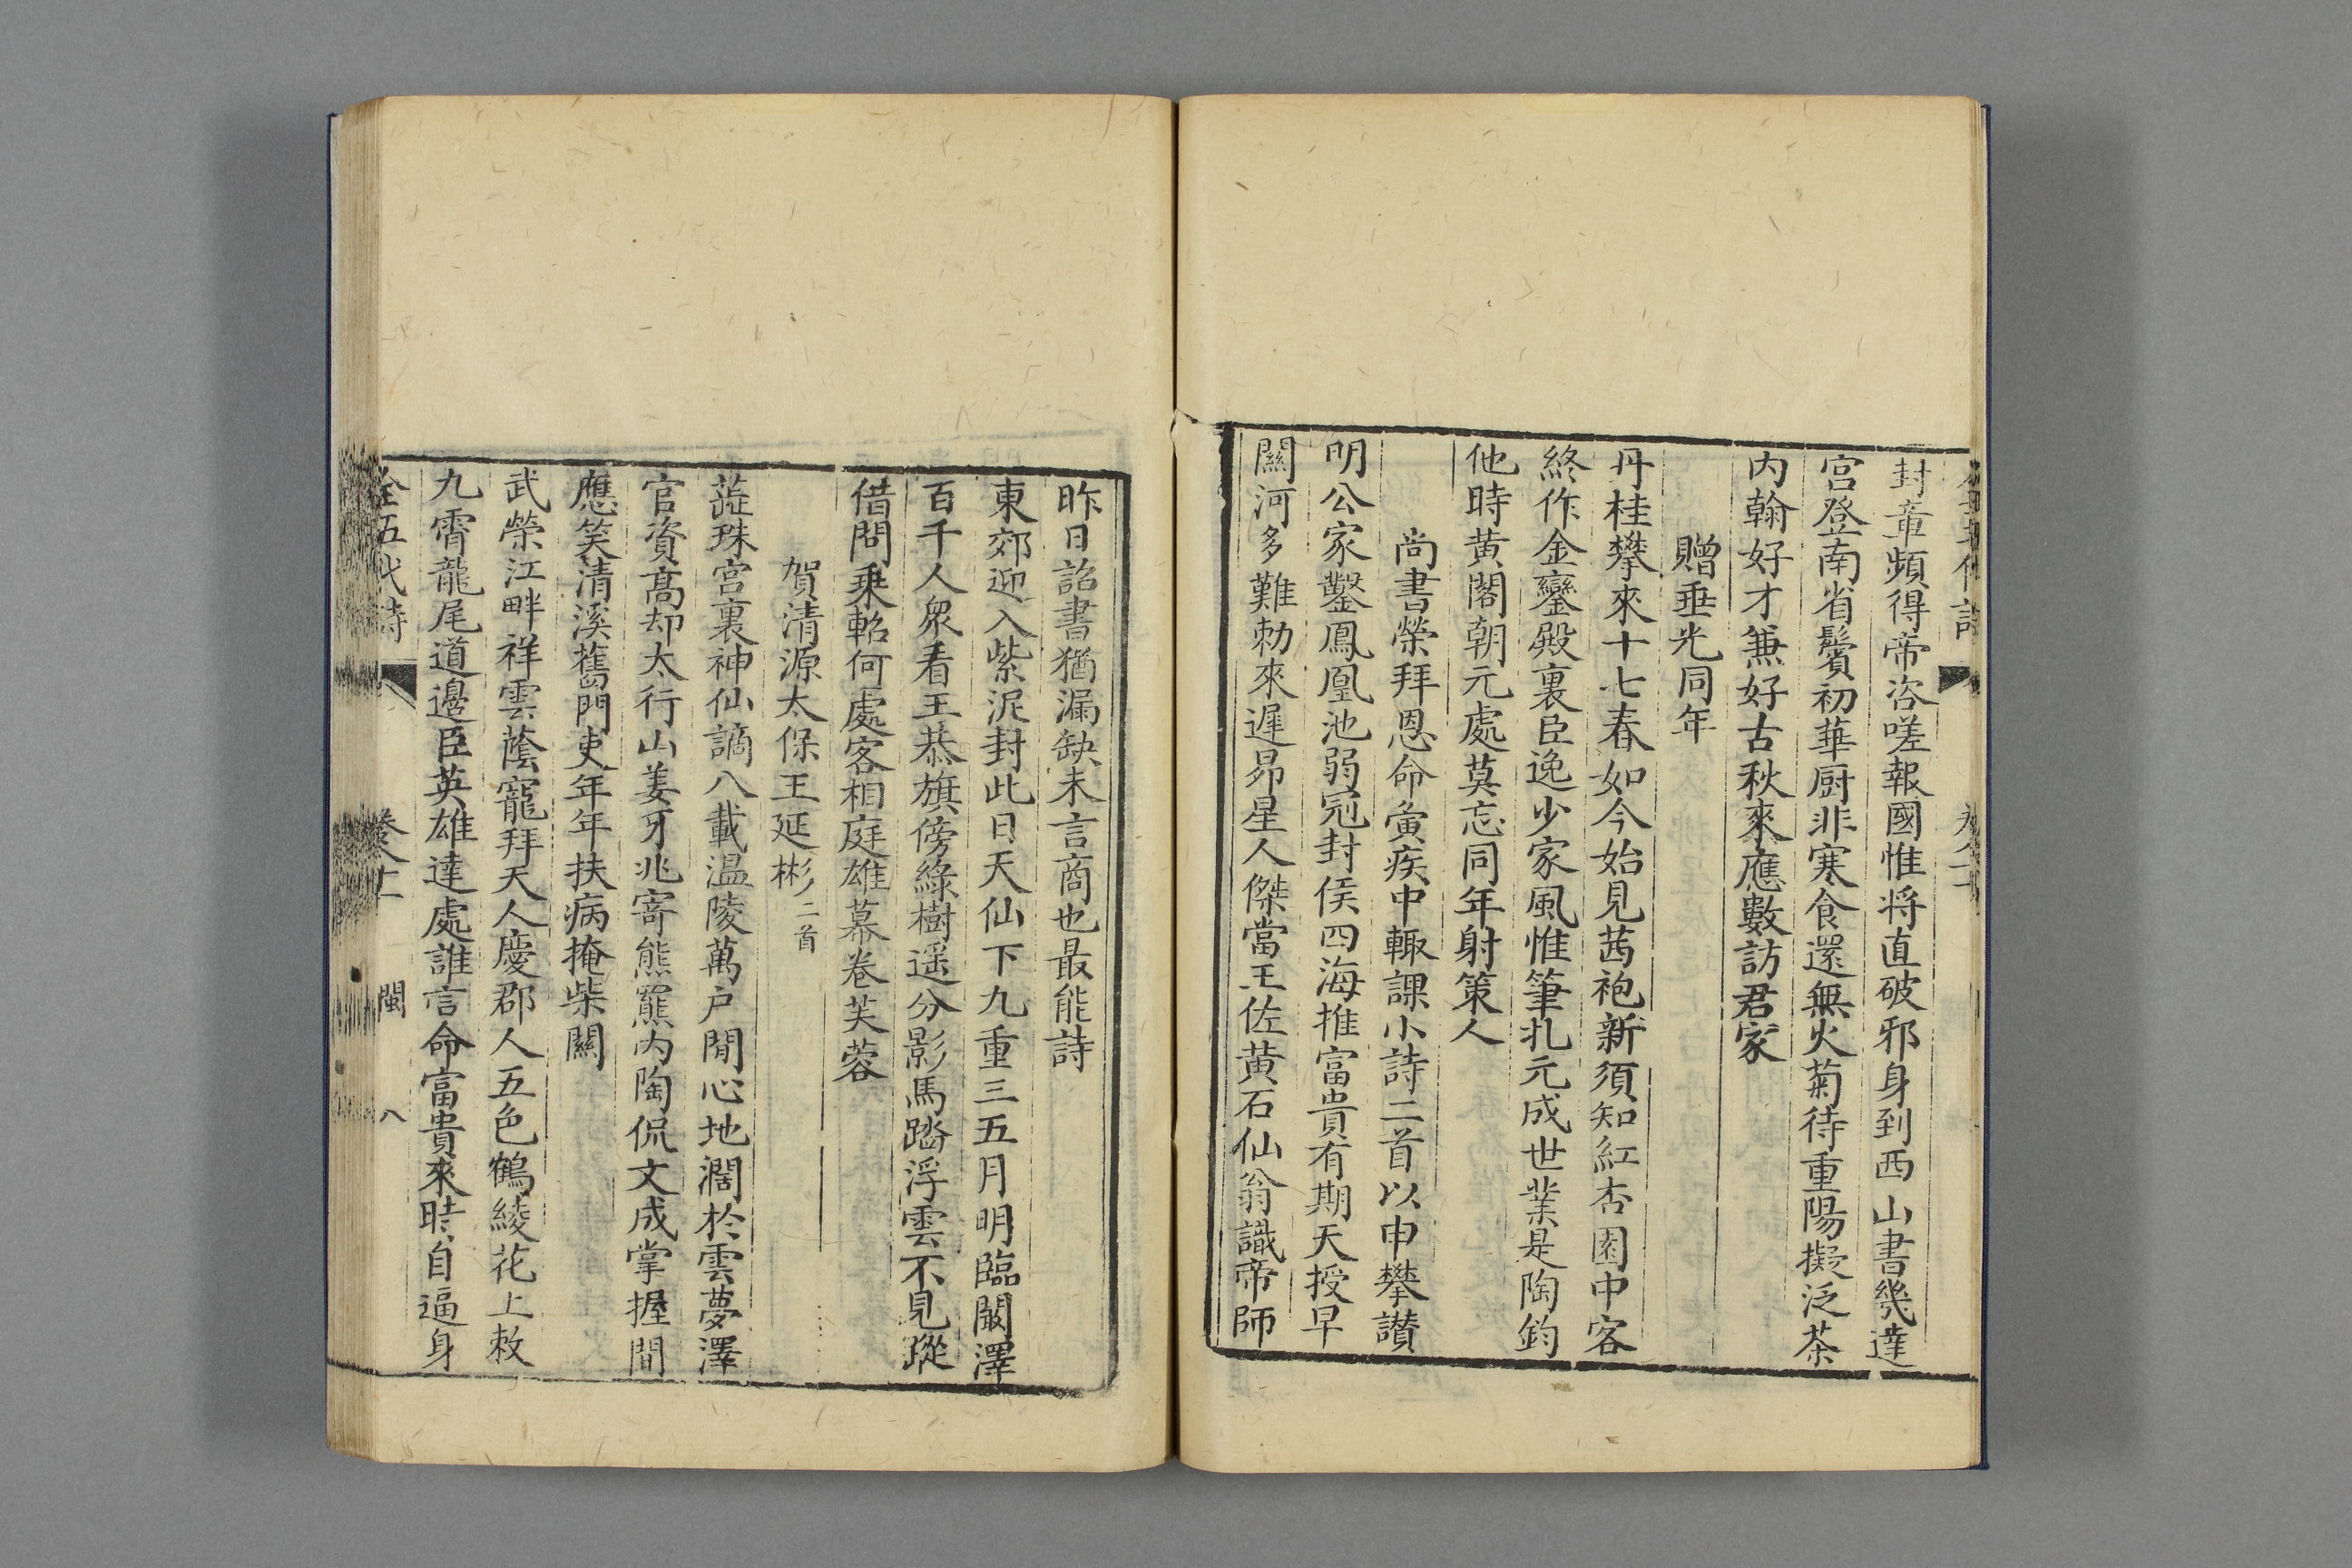 封章頻得帝咨嗟報國惟將直破邪身到西山書幾達
宮登南省鬢初華厨非寒食還無火菊待重陽擬泛茶
内翰好才兼好古秋來應數訪君家
贈垂光同年
丹桂攀來十七春如今始見茜袍新須知紅杏園中客
終作金鑾殿裏臣逸少家風惟筆札元成世業是陶鈞
他時黄閣朝元處莫忘同年射策人
尚書榮拜恩命夤疾中輒課小詩二首以申攀讃
明公家鑿鳳凰池弱冠封侯四海推富貴有期天授早
關河多難勅來遲昴星人傑當王佐黄石仙翁識帝師
昨日詔書猶漏缺未言商也最能詩
東郊迎入紫泥封此日天仙下九重三五月明臨闞澤
百千人衆看王恭旗傍綠樹遥分影馬踏浮雲不見蹤
借問乗軺何處客相庭雄幕卷芙蓉
賀清源太保王延彬二首
蕋珠宮裏神仙謫八載温陵萬户閒心地濶於雲夢澤
官資髙却太行山姜牙兆寄熊羆内陶侃文成掌握間
應笑清溪舊門吏年年扶病掩柴關
武榮江畔祥雲蔭寵拜天人慶郡人五色鶴綾花上敕
九霄龍尾道邊臣英雄達處誰言命富貴來時自逼身
全五代詩 卷八十一 閩 八